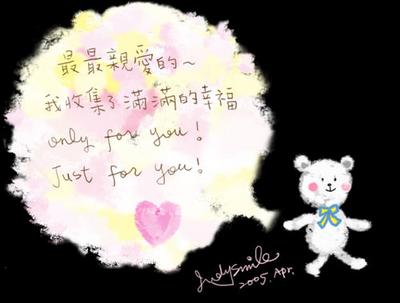 最最親愛的~
我收集了滿滿的幸福
only for you!
Just for you!
Judysmile
2005. Apr.